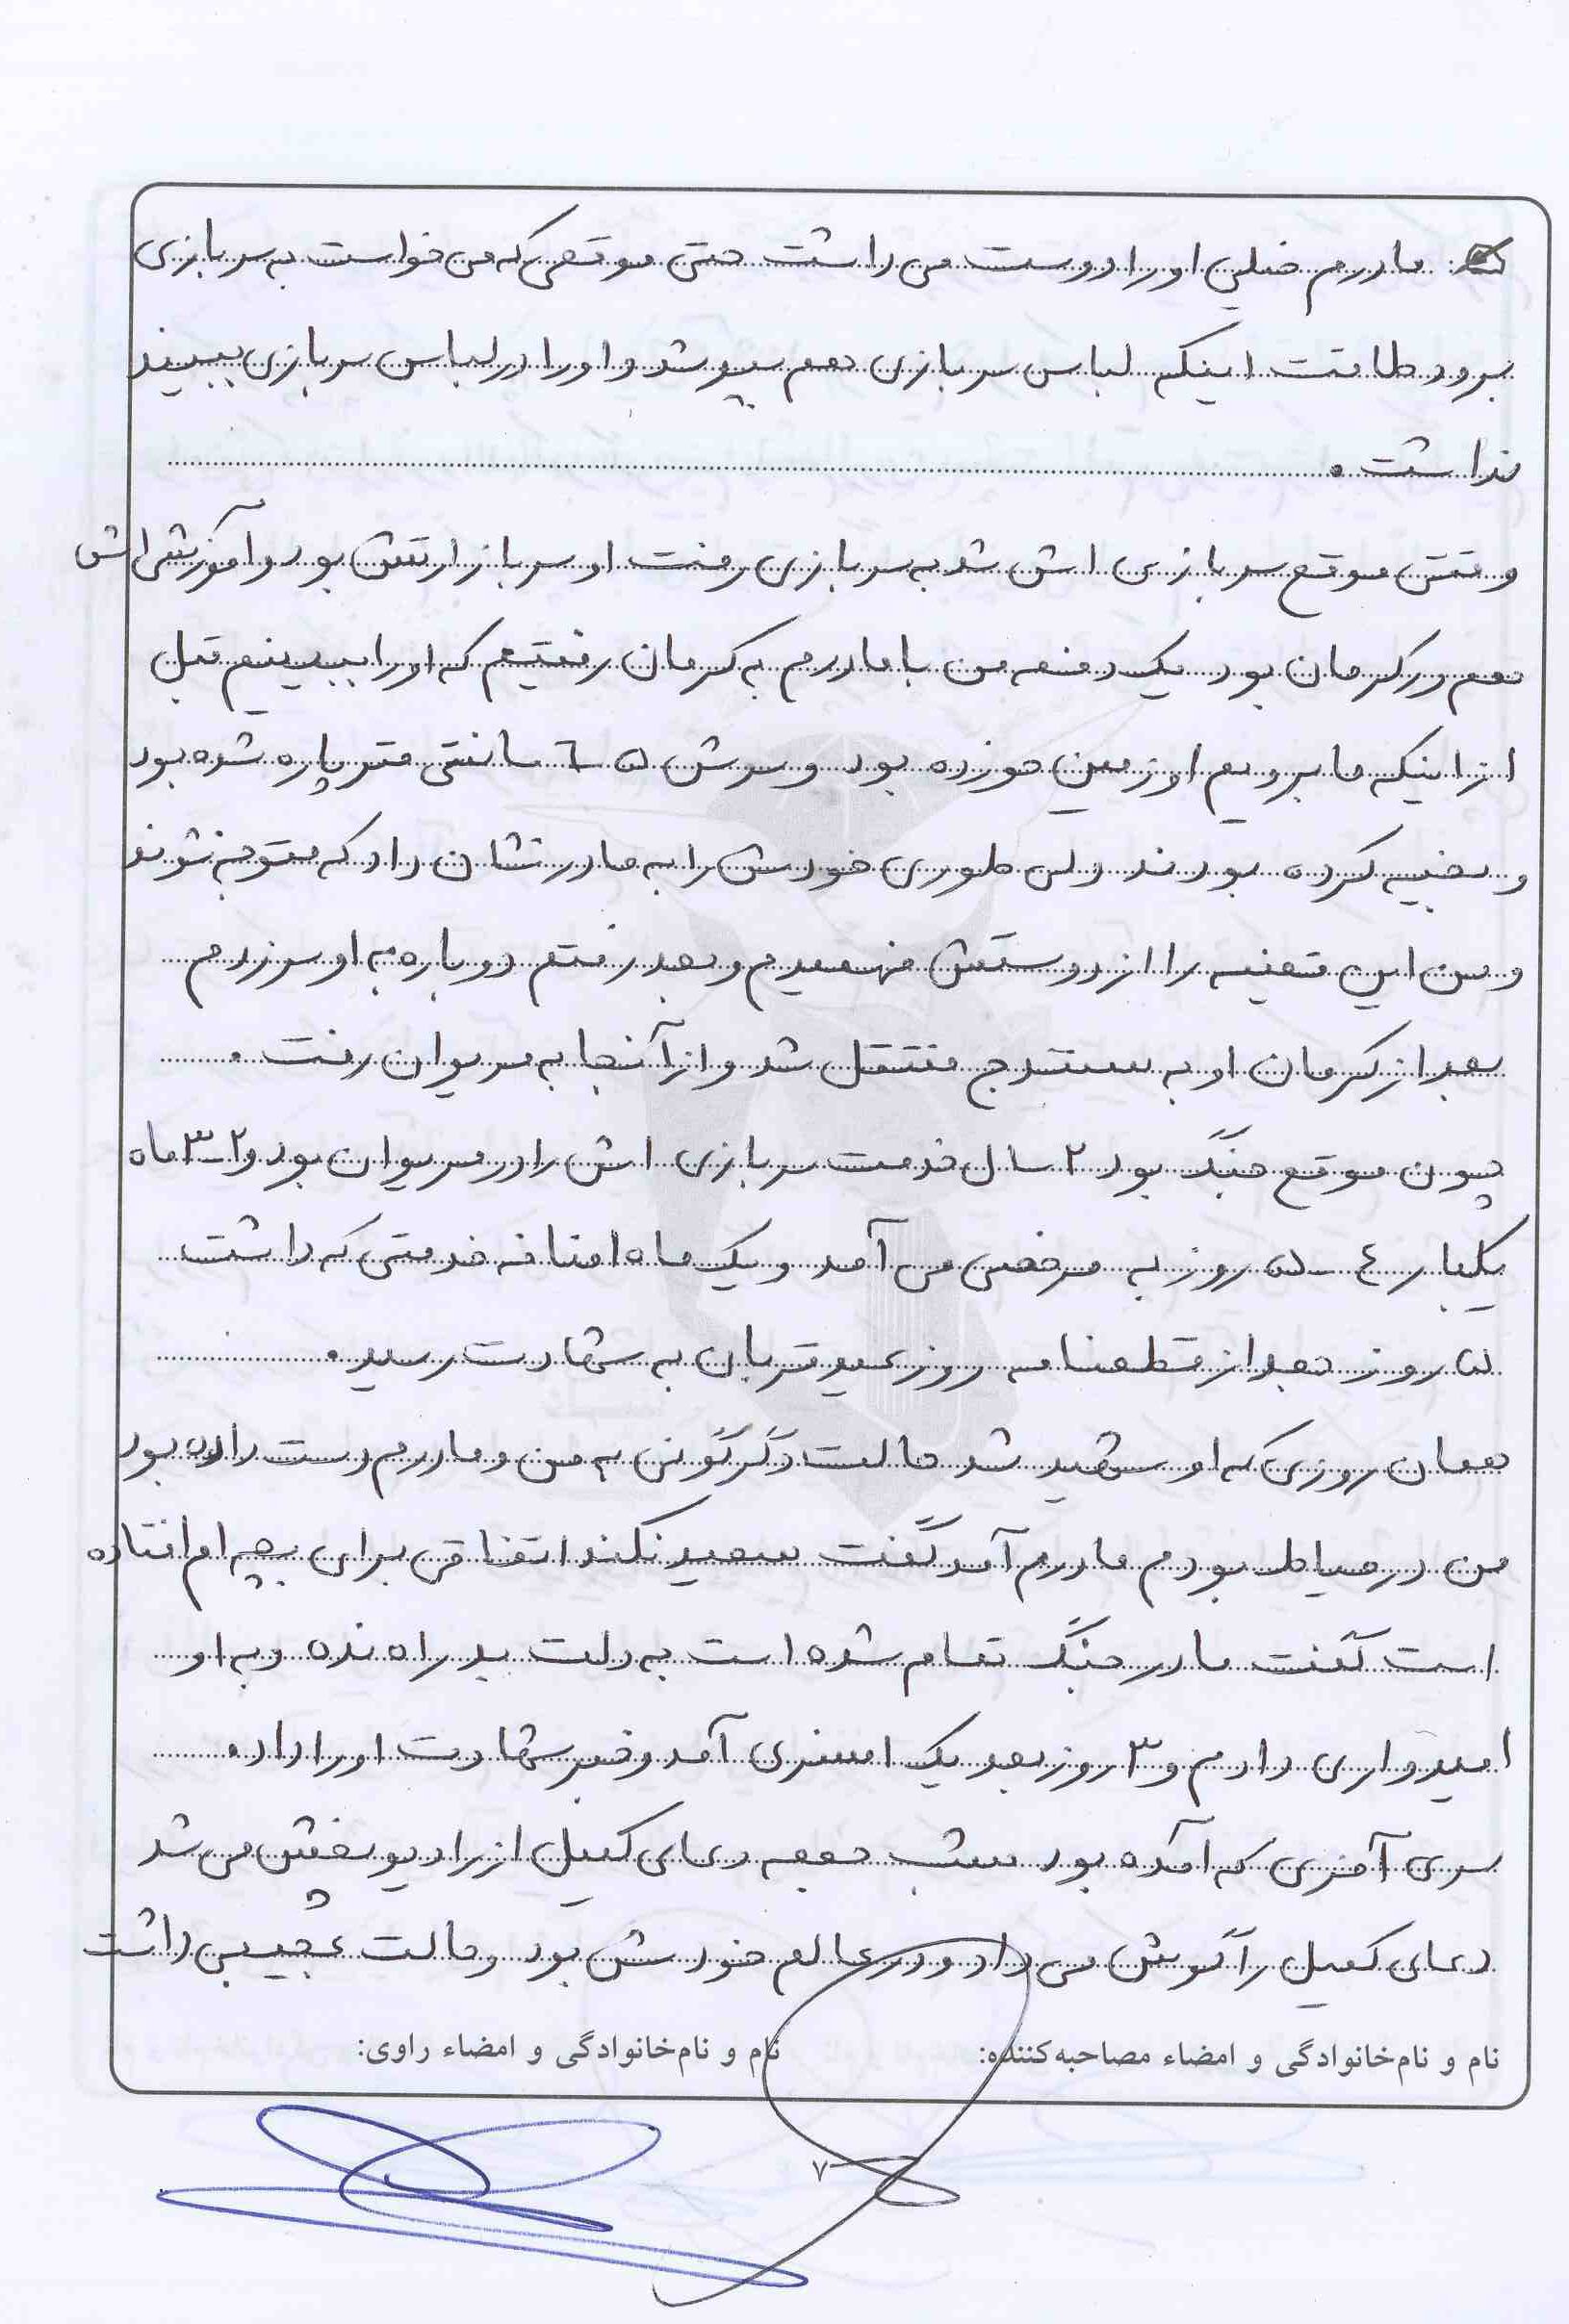 مادرم خیلی او را دوست می داشت حتی موقعی که می خواست به سربازی
برود طاقت اینکه لباس سربازی هم بپوشد و او را در لباس سربازی ببیند
نداشت.
وقتی موقع سربازی اش شد به سربازی رفت او سرباز ارتش بود و آموزشی اش
هم در کرمان بود یک دفعه من با مادرم به کرمان رفتیم که او را ببینیم قبل
از اینکه ما برویم او زمین خورده بود و سرش ۵ - ۶ سانتی متر پاره شده بود
و بخیه کرده بودند ولی طوری خودش را به مادر نشان داد که متوجه نشوند
و من این قضیه را از دوستش فهمیدم و بعد رفتم دوباره به او سر زدم
بعد از کرمان او به سنندج منتقل شد و از آنجا به مریوان رفت.
چون موقع جنگ بود ۲ سال خدمت سربازی اش را در مریوان بود و ۲-۳ ماه
یکبار ۴ - ۵ روز به مرخصی می آمد و یک ماه اضافه خدمتی که داشت
۵ روز بعد از قطعنامه روز عید قربان به شهادت رسید.
همان روزی که او شهید شد حالت دگرگونی به من و مادرم دست داده بود
من در حیاط بودم مادرم آمد گفت سعید نکند اتفاقی برای بچه ام افتاده
است گفت مادر جنگ تمام شده است به دلت بد راه نده و به او
امیدواری دادم و ۳ روز بعد یک افسری آمد و خبر شهادت او را داد.
سری آخری که آمده بود شب جمعه دعای کمیل از رادیو پخش می شد
دعای کمیل را گوش می داد و در عالم خودش بود و حالت عجیبی داشت
نام و نام‌خانوادگی و امضاء مصاحبه‌کننده: نام و نام‌خانوادگی و امضاء راوی:
۷